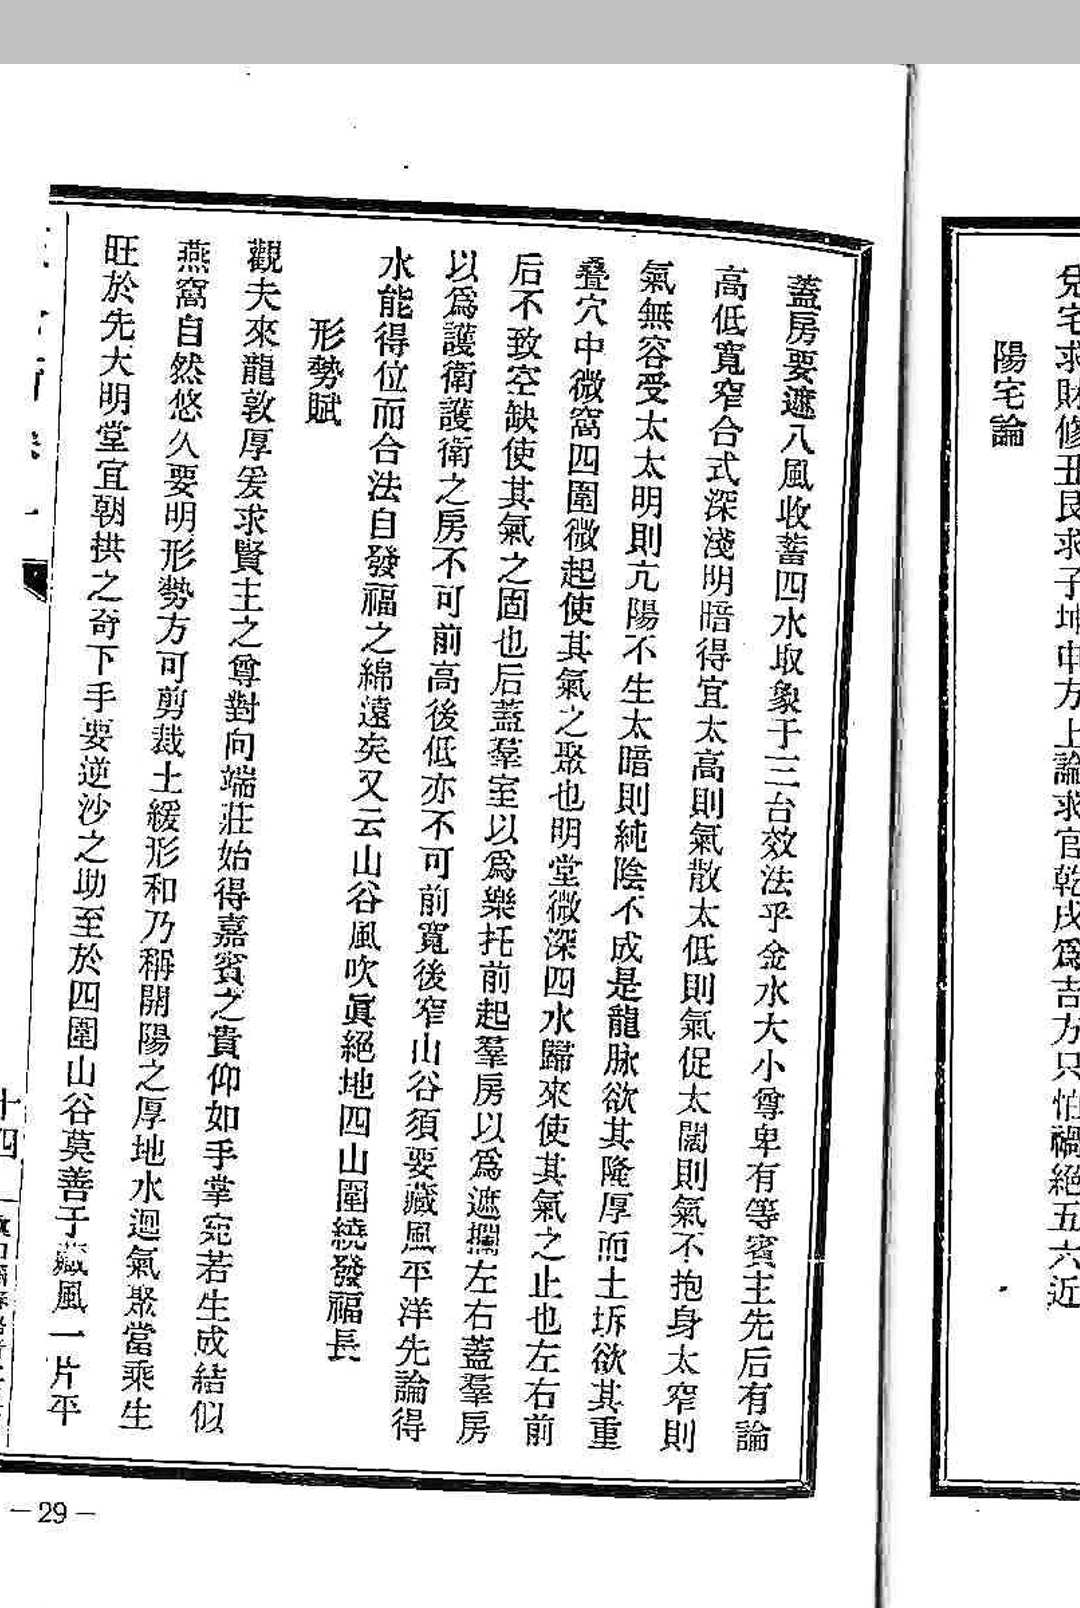 兌宅求財修丑艮求子坤申方上論求官乾戌爲吉方只怕禍絕五六近
陽宅論
蓋房要遮八風收蓄四水取象于三台效法乎金水大小尊卑有等賓主先后有論
高低寬窄合式深淺明暗得宜太高則氣散太低則氣促太闊則氣不抱身太窄則
氣無容受太太明則亢陽不生太暗則純陰不成是龍脉欲其隆厚而土坼欲其重
叠穴中微窩四圍微起使其氣之聚也明堂微深四水歸來使其氣之止也左右前
后不致空缺使其氣之固也后蓋羣室以爲樂托前起羣房以爲遮攔左右蓋羣房
以爲護衛護衛之房不可前高後低亦不可前寬後窄山谷須要藏風平洋先論得
水能得位而合法自發福之綿遠矣又云山谷風吹眞絕地四山圍繞發福長
形勢賦
觀夫來龍敦厚爰求賢主之尊對向端莊始得嘉賓之貴仰如手掌宛若生成結似
燕窩自然悠久要明形勢方可剪裁土緩形和乃稱開陽之厚地水迴氣聚當乘生
旺於先大明堂宜朝拱之奇下手要逆沙之助至於四圍山谷莫善于藏風一片平
十四
－29－